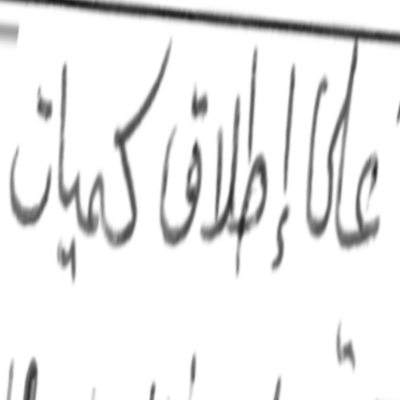 على إطلاق كميات